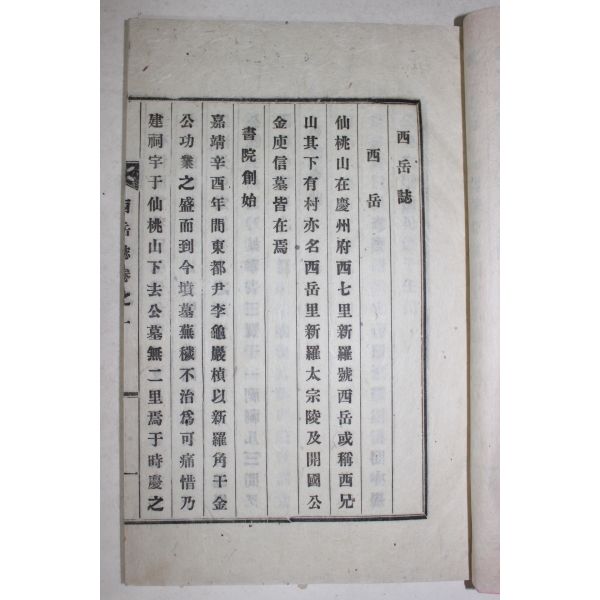 西岳誌
西岳
仙桃山在慶州府西七里新羅號西岳或稱西兄
山其下有村亦名西岳里新羅太宗陵及開國公
金庾信墓皆在焉
書院創始
嘉靖辛酉年間東都尹李龜巖楨以新羅角干金
公功業之盛而到今墳墓蕪穢不治爲可痛惜乃
建祠宇于仙桃山下去公墓無二里焉于時慶之
西岳誌卷之一
一